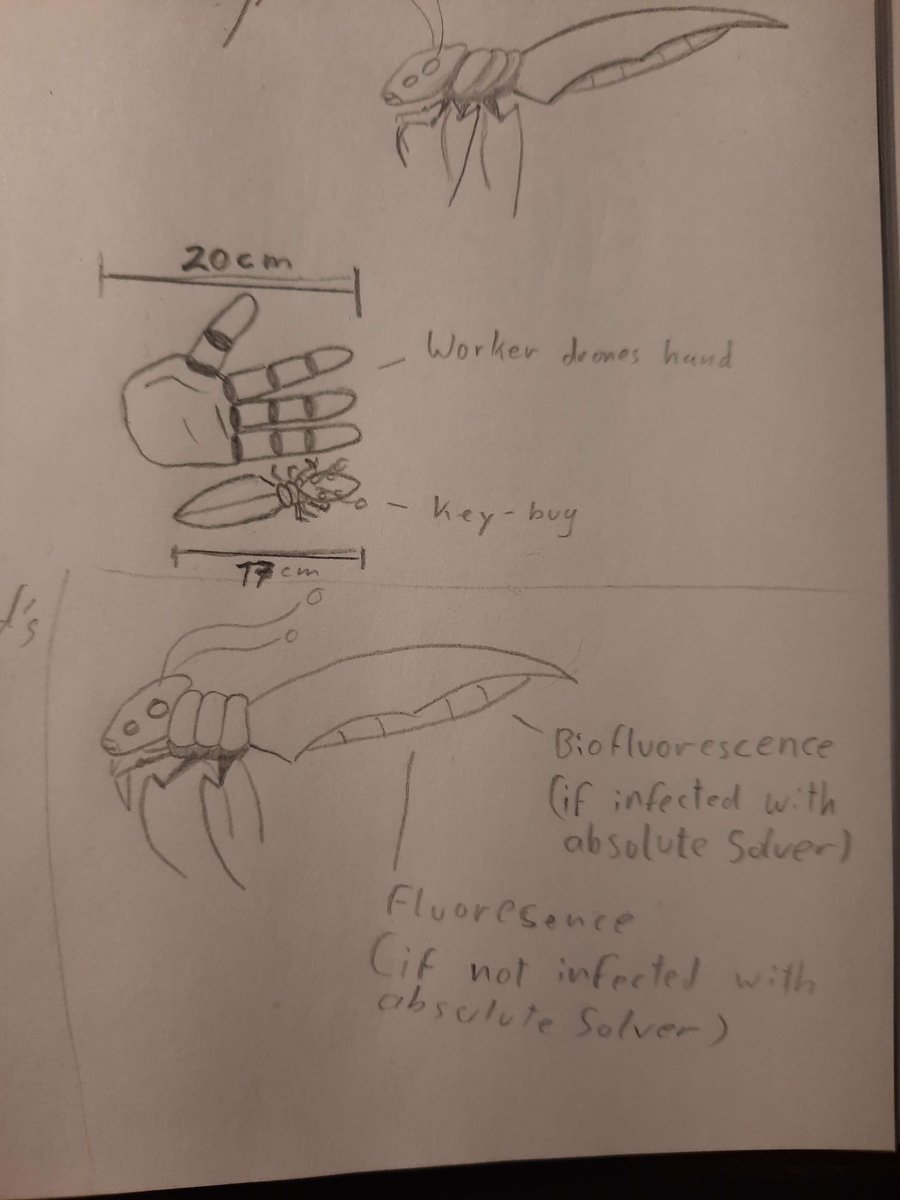 20cm
Worker drones hand
Key-bug
17cm
Biofluorescence
(if infected with
absolute Solver)
Fluoresence
(if not infected with
absolute Solver)